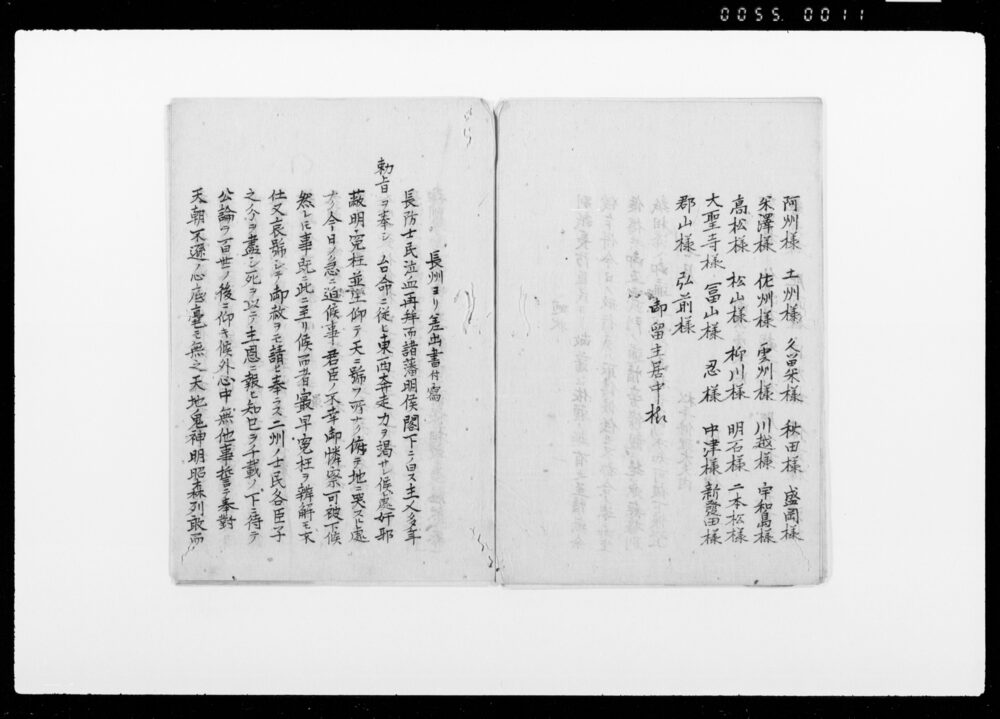 0055.0011
阿州様 土州様 久留米様 秋田様 盛岡様
米澤様 佐州様 雲州様 川越様 宇和島様
高松様 松山様 柳川様 明石様 二本松様
大聖寺様 冨山様 忍様 中津様 新發田様
郡山様 弘前様
御留主居中様
長州ヨリ差出書付寫
長防士民泣血再拜而諸藩明侯閣下ニ白ス主人多年
勅旨ヲ奉シ台命ニ従ヒ東西奔走力ヲ竭サレ候處奸邪
蔽明寃枉並至仰テ天ニ號フ所ナク俯テ地ニ哭スル處
ナク今日ノ急ニ迫候事君臣ノ不幸御憐察可被下候
然ルニ事既ニ此ニ至リ候而者最早寃枉ヲ辨解モ不
仕又哀號シテ御赦ヲモ請ヒ奉ラス二州ノ士民各臣子
之分ヲ盡シ死ヲ以テ主恩ニ報ヒ知己ヲ千載ノ下ニ待テ
公論ヲ百世ノ後ニ仰キ候外心中無他事誓テ奉對
天朝不遜ノ心底毫モ無之天地鬼神明昭森列敢而